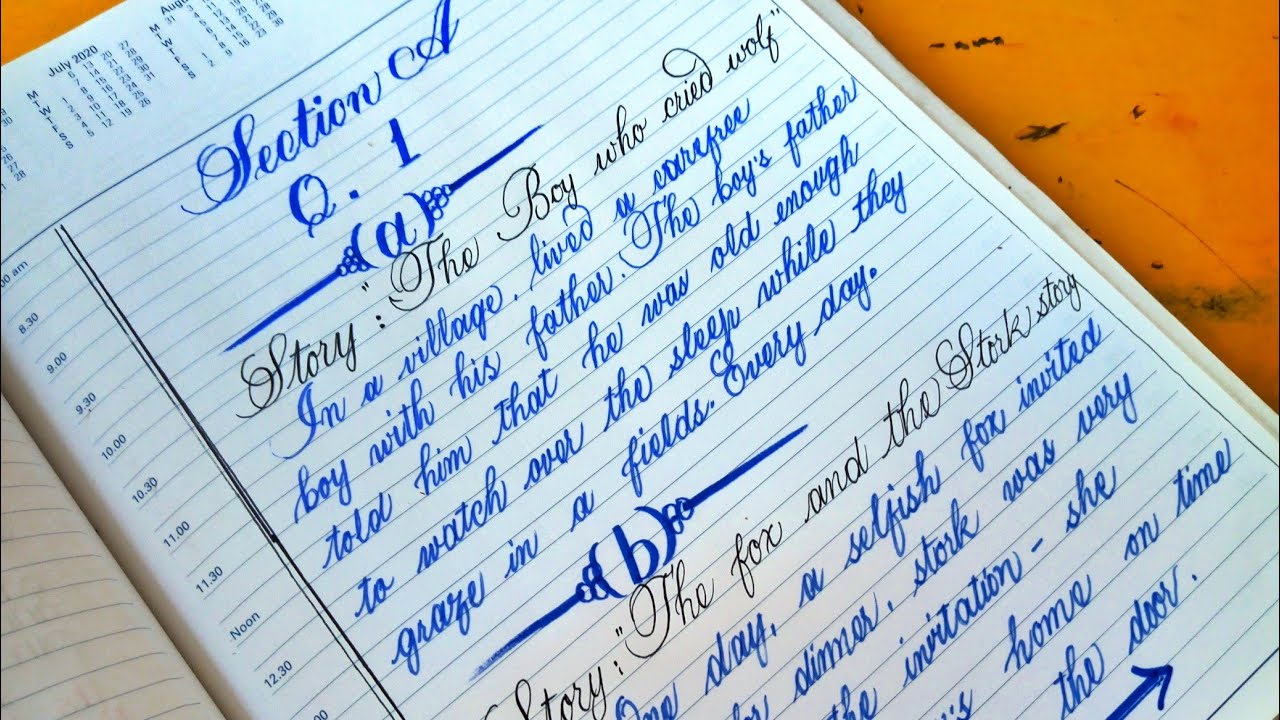 July 2020
Augu
Section A
Q. 1
(a)
Story : "The Boy who cried wolf"
In a village. lived a carefree
boy with his father. The boy's father
told him that he was old enough
to watch over the sleep while they
graze in a fields. Every day.
(b)
Story : "The fox and the Stork story
One day, a selfish fox invited
dinner. stork was very
the invitation - she
home on time
the door.
00 am
8.30
9.00
9.30
10.00
10.30
11.00
11.30
Noon
12.30